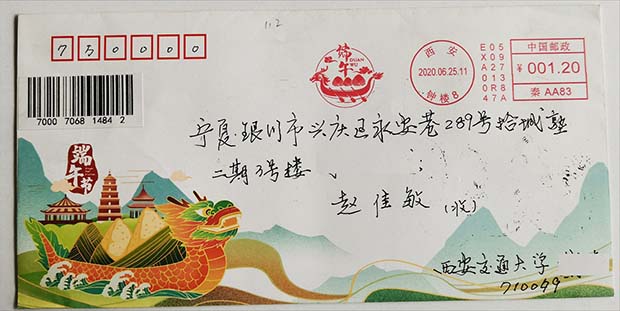 11.2
750000
端午
DUAN
WU
西安
2020.06.25.11
钟楼8
E05
X09
A27
013
0R8
47A
中国邮政
¥ 001.20
秦 AA83
7000 7068 1484 2
宁夏银川市兴庆区永安巷289号拾城塾
二期3号楼
赵佳敏(收)
端午节
西安交通大学
710049